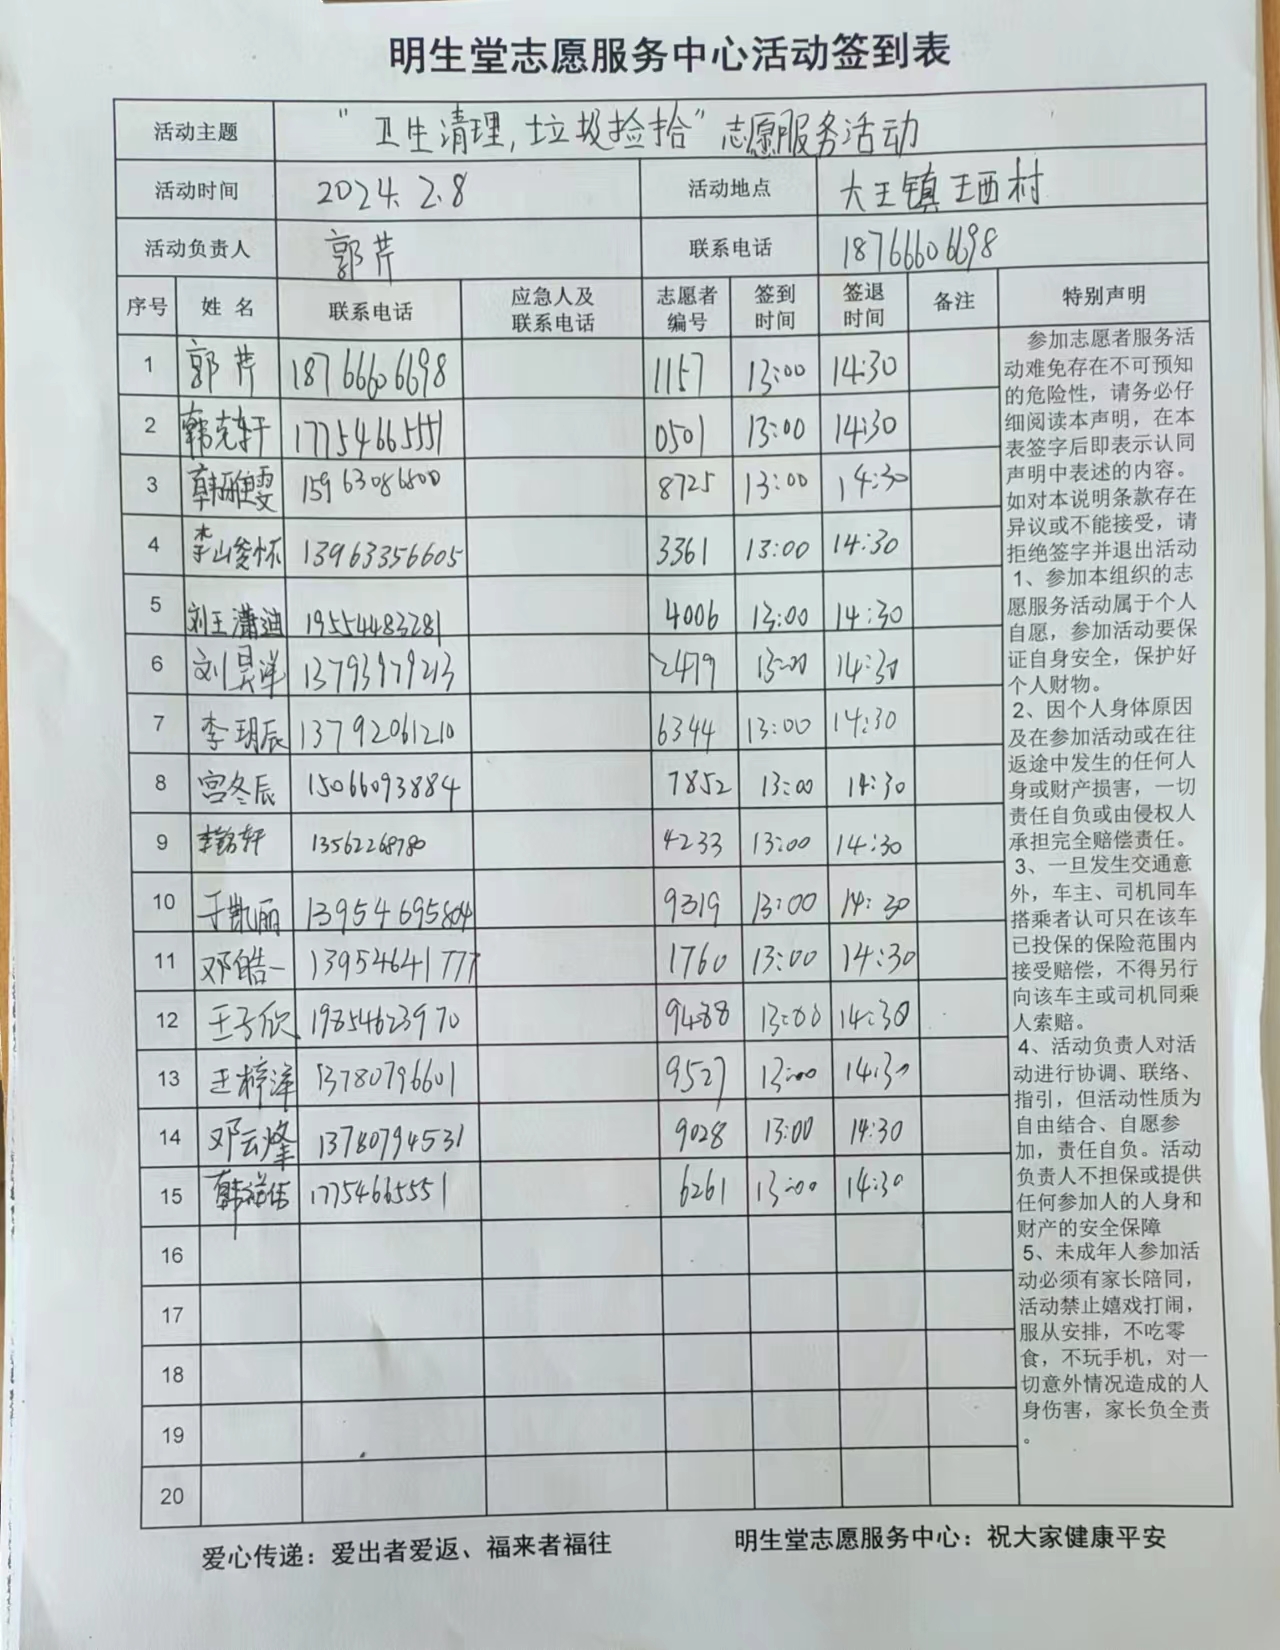 明生堂志愿服务中心活动签到表
活动主题 “卫生清理,垃圾捡拾”志愿服务活动
活动时间 2024.2.8 活动地点 大王镇王西村
活动负责人 郭芹 联系电话 18766606698
序号 姓名 联系电话 应急人及联系电话 志愿者编号 签到时间 签退时间 备注 特别声明
1 郭芹 18766606698 1157 13:00 14:30
2 韩克轩 17754665551 0501 13:00 14:30
3 韩雅雯 15963086800 8725 13:00 14:30
4 李峻怀 13963356605 3361 13:00 14:30
5 刘王潇迪 19554483281 4006 13:00 14:30
6 刘昊洋 13793979213 2479 13:00 14:30
7 李玥辰 13792061210 6344 13:00 14:30
8 宫冬辰 15066093884 7852 13:00 14:30
9 13562268780 4233 13:00 14:30
10 于凯丽 13954695804 9319 13:00 14:30
11 邓皓一 13954641777 1760 13:00 14:30
12 王子欣 19854623970 9488 13:00 14:30
13 王梓泽 13780796601 9527 13:00 14:30
14 邓云烽 13780794531 9028 13:00 14:30
15 17754665551 6261 13:00 14:30
16
17
18
19
20
参加志愿者服务活
动难免存在不可预知
的危险性，请务必仔
细阅读本声明，在本
表签字后即表示认同
声明中表述的内容。
如对本说明条款存在
异议或不能接受，请
拒绝签字并退出活动
1、参加本组织的志
愿服务活动属于个人
自愿，参加活动要保
证自身安全，保护好
个人财物。
2、因个人身体原因
及在参加活动或在往
返途中发生的任何人
身或财产损害，一切
责任自负或由侵权人
承担完全赔偿责任。
3、一旦发生交通意
外，车主、司机同车
搭乘者认可只在该车
已投保的保险范围内
接受赔偿，不得另行
向该车主或司机同乘
人索赔。
4、活动负责人对活
动进行协调、联络、
指引，但活动性质为
自由结合、自愿参
加，责任自负。活动
负责人不担保或提供
任何参加人的人身和
财产的安全保障
5、未成年人参加活
动必须有家长陪同，
活动禁止嬉戏打闹，
服从安排，不吃零
食，不玩手机，对一
切意外情况造成的人
身伤害，家长负全责
。
爱心传递：爱出者爱返、福来者福往 明生堂志愿服务中心：祝大家健康平安